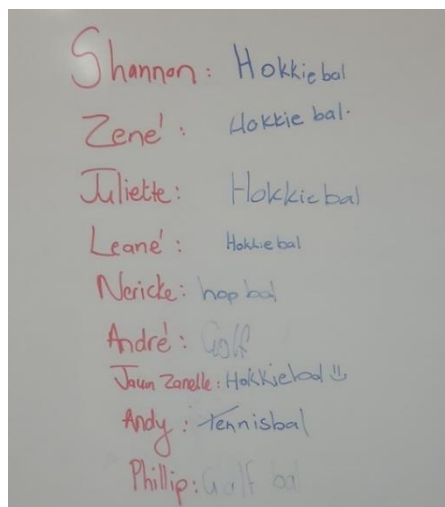 Shannon: Hokkiebal
Zené: Hokkie bal.
Juliette: Hokkiebal
Leané: Hokkiebal
Nericke: hop bal
André: Golf
Zanelle: Hokkiebal
Andy: Tennisbal
Phillip: Golf bal